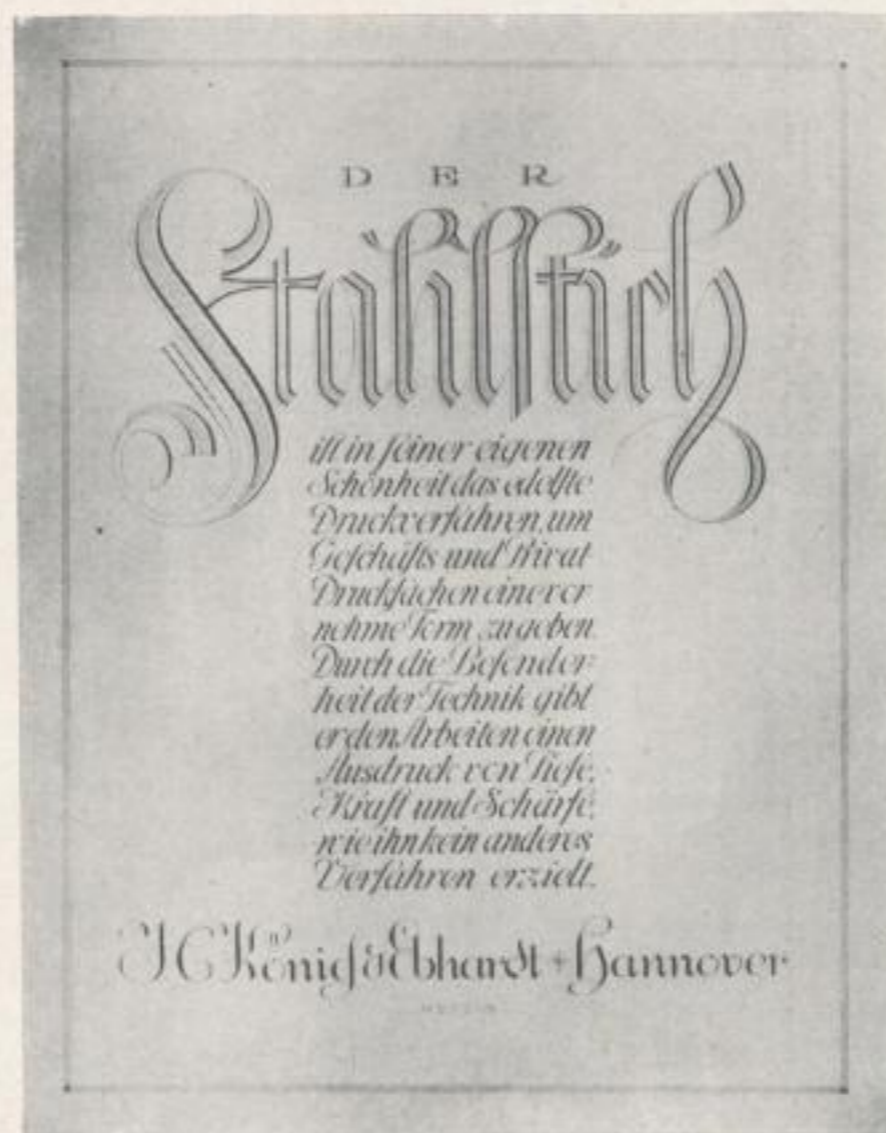 DER
Stahlstich
ist in seiner eigenen
Schönheit das edelste
Druckverfahren, um
Geschäfts und Privat
Drucksachen eine vor
nehme Form zu geben.
Durch die Besonder-
heit der Technik gibt
er den Arbeiten einen
Ausdruck von Tiefe,
Kraft und Schärfe,
wie ihn kein anderes
Verfahren erzielt.
J C König & Ebhardt + Hannover